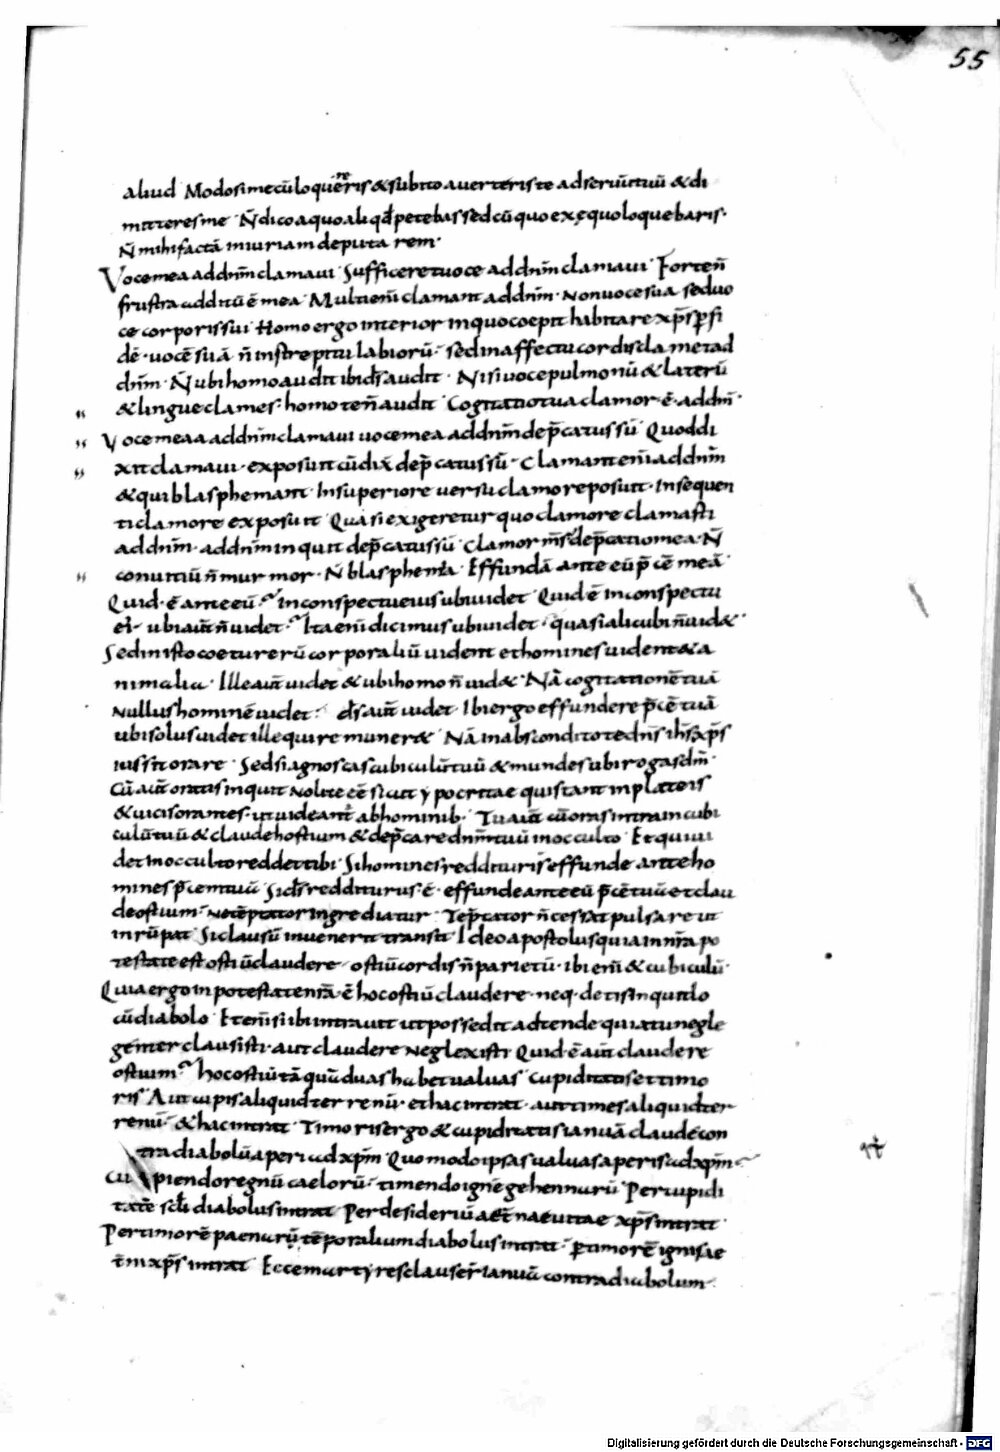 55
aliud Modo si mecū loquereris & subito averteris te ad servū tuū & di
mitteres me Ñ dico a quo aliqd petebas sed cū quo ex ęquo loquebaris.
Ñ mihi factā iniuriam deputarem.
Voce mea ad dnm clamavi Sufficeret voce ad dnm clamavi Forte ñ
frustra additū ē mea Multi enī clamant ad dnm. Non voce sua sed vo
ce corporis sui Homo ergo interior in quo coepit habitare xps p fi
dē. vocē suā ñ in strepitu labiorū. sed in affectu cordis clamet ad
dnm. Ñ ubi homo audit ibi ds audit. Nisi voce pulmonū & laterū
& lingue clames. homo te ñ audit Cogitatio tua clamor. ē. ad dnm.
Voce mea a ad dnm clamavi voce mea ad dnm depcatus sū Quod di
xit clamavi. exposuit cū dix depcatus sū. Clamant enī ad dnm
& qui blasphemant. In superiore versu clamore posuit. In sequen
ti clamore exposuit Quasi exigeretur quo clamore clamasti
ad dnm. ad dnm inquit depcatus sū Clamor ms depcatio mea. Ñ
conuitiū ñ murmor. Ñ blasphemia Effundā ante eū pcē meā
Quid. ē ante eū in conspectu eius ubi videt Quid ē in conspectu
ei. ubi aut ñ videt. Ita enī dicimus ubi videt. quasi alicubi ñ vid&
Sed in isto coetu rerū corporaliū vident et homines vident & a
nimalia. Ille aut videt & ubi homo ñ vid&. Nā cogitationē tuā
Nullus hominē videt. ds aut videt Ibi ergo effundere pcē tuā
ubi solus videt ille qui remuner& Nā in abscondito te dns ihs xps
iussit orare Sed si agnoscas cubiculū tuū & mundes ubi rogas dm.
Cū aut oratis inquit nolite eē sicut ypocritae qui stant in plateis
& vicis orantes. ut videant ab hominib. Tu aut cū oras intra in cubi
culū tuū & claude hostium & depcare dnm tuū in occulto Et qui vi
det in occulto reddet tibi Si homines reddituri s effunde ante ho
mines pcem tuū Si ds redditurus. ē. effunde ante eū pcē tuū et clau
de ostium. ne tēptator ingrediatur. Teptator ñ cessat pulsare ut
inrūpat Si clausū invenerit transit Ideo apostolus quia in nra po
testate est ostiū claudere ostiū cordis ñ parietū. ibi enī & cubiculū.
Quia ergo in potestate nra. ē hoc ostiū claudere. neq. detis inquit lo
cū diabolo Etenī si ibi intravit ut possedit adtende quia tu negle
genter clausisti. aut claudere neglexisti Quid ē aut claudere
ostium. hoc ostiū tā quā duas habet valvas cupiditatis et timo
ris Aut cupis aliquid terrenū. et hac intrat. aut times aliquid ter
renū. & hac intrat Timoris ergo & cupiditatis ianuā claude con
tra diabolū aperi ad xpm Quomodo ipsas valvas aperis ad xpm
cupiendo regnū caelorū. timendo ignē gehennarū Per cupidi
tatē scli diabolus intrat Per desideriū aetnae vitae xps intrat
Per timorē paenarū tēporalium diabolus intrat. p timorē ignis ae
tni xps intrat Ecce martyres clauser ianuā contra diabolum.
Digitalisierung gefördert durch die Deutsche Forschungsgemeinschaft - DFG